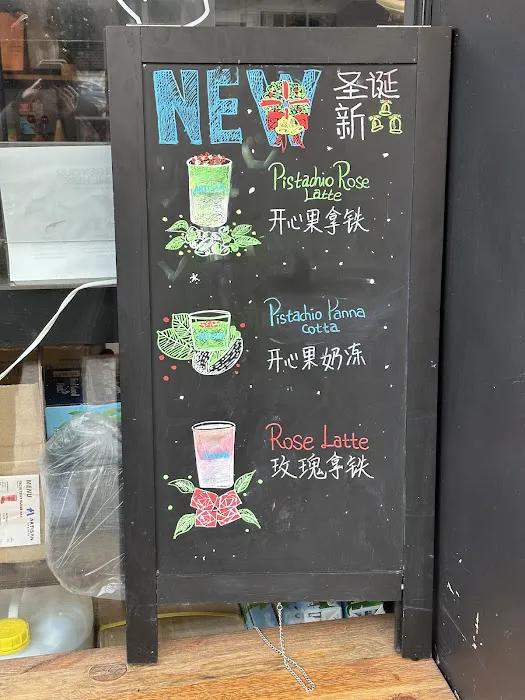 NEW
圣诞
新
Pistachio Rose
Latte
开心果拿铁
Pistachio Panna
cotta
开心果奶冻
Rose Latte
玫瑰拿铁
MENU
ARTISAN